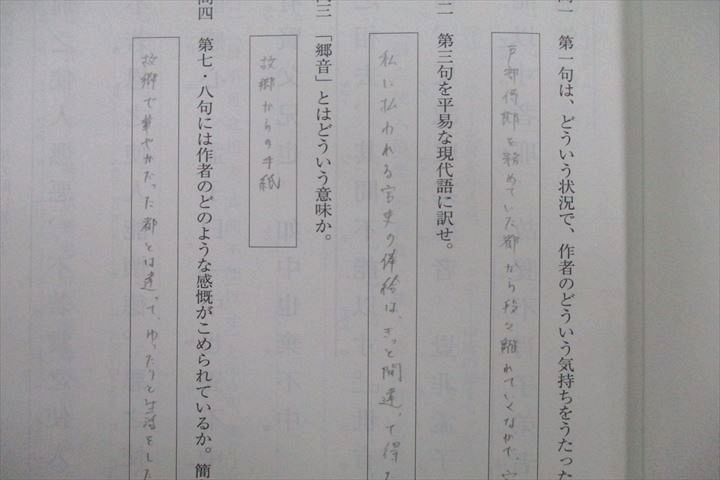 問一　第一句は、どういう状況で、作者のどういう気持ちをうたった
戸部侍郎を務めていた都から段々離れていくなかで、
問二　第三句を平易な現代語に訳せ。
私に払われる官吏の俸給は、きっと間違って得た
問三　「郷音」とはどういう意味か。
故郷からの手紙
問四　第七・八句には作者のどのような感慨がこめられているか。簡
故郷で華やかだった都とは違って、ゆったりと生活をした